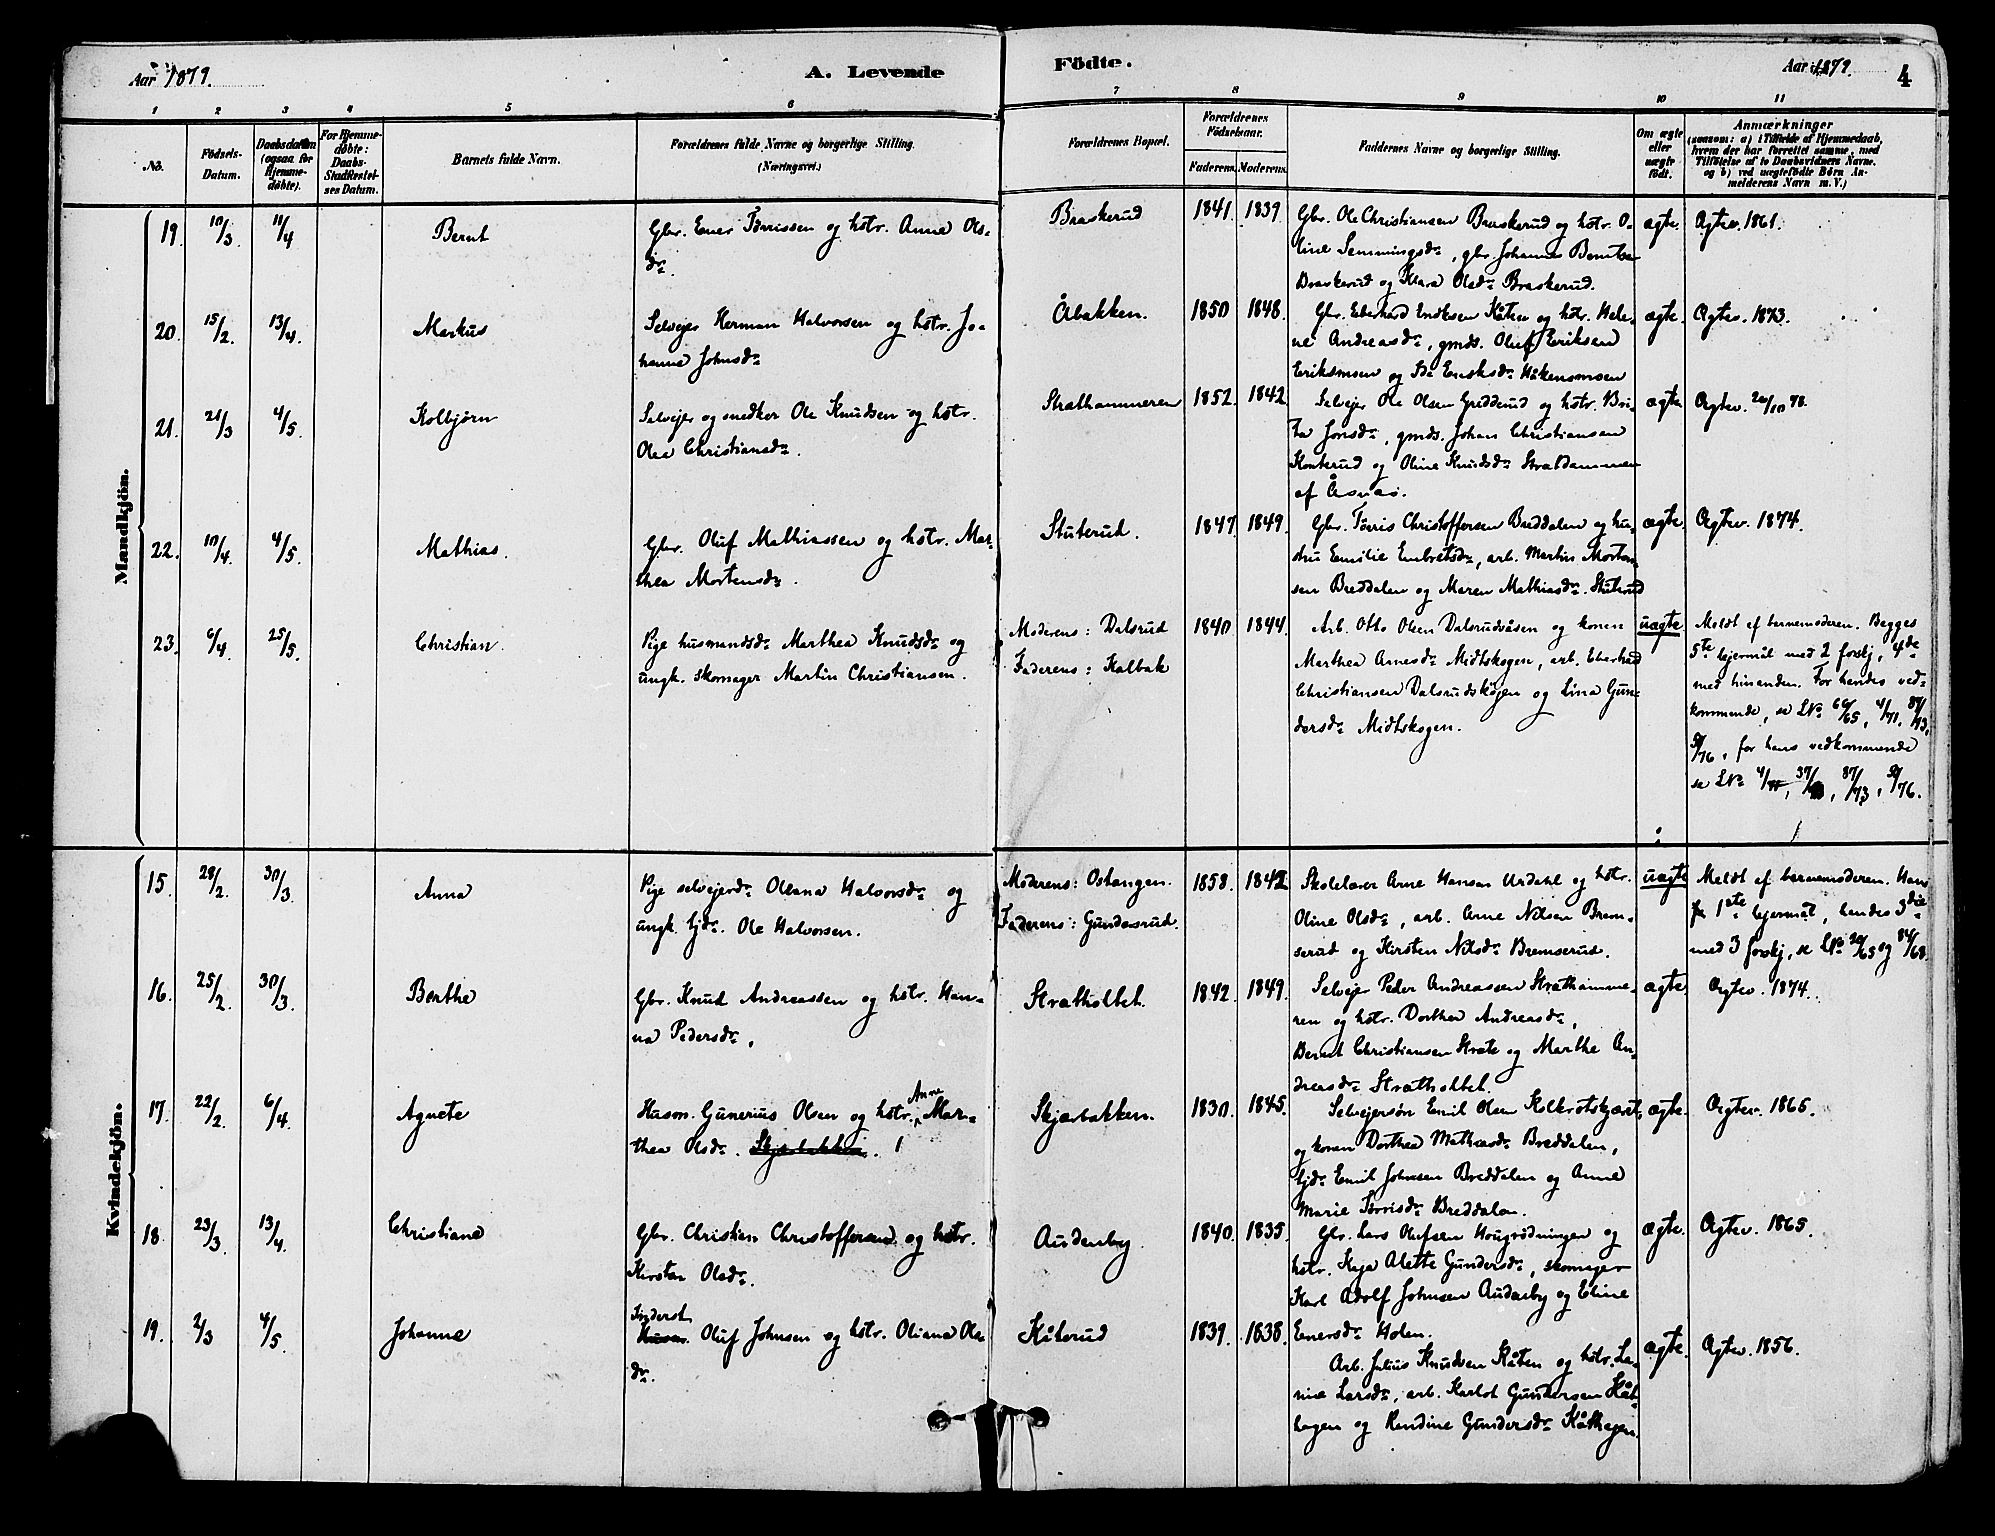 Aar 1879.
A. Levende
Födte.
Aar 1879.
4
1 2 3 4 5 6 7 8 9 10 11
No.
Födsels-
Datum.
Daabsdatum
(ogsaa for
Hjemme-
döbte).
For Hjemme-
döbte:
Daabs-
Stadfæstel-
ses Datum.
Barnets fulde Navn.
Forældrenes fulde Navne og borgerlige Stilling.
(Næringsvei.)
Forældrenes Bopæl.
Forældrenes
Födselsaar.
Faderens.
Moderens.
Faddernes Navne og borgerlige Stilling.
Om ægte
eller
uægte
født.
Anmærkninger
(saasom: a) i Tilfælde af Hjemmedaab,
hvem der har forrettet samme, med
Tilföielse af to Daabsvidners Navne.
og b) ved uægtefödte Börn An-
melderens Navn m. V.)
Mandkjön.
19. 10/3 11/4 Bernt
Gbr. Ener Tørrissen og hstr. Anne Ols-
dr.
Braskerud 1841. 1839.
Gbr. Ole Christiansen Braskerud og hstr. O-
line Semmingsdr, gbr. Johannes Berntsen
Braskerud og Klara Olsdr Braskerud.
ægte. Ægtev. 1861.
20. 15/2 13/4 Markus
Selvejer Herman Halvorsen og hstr. Jo-
hanne Johnsdr
Åbakken. 1850 1848.
Gbr. Eberhard Eriksen Kåten og hstr. Hele-
ne Andreasdr, gmds. Oluf Eriksen
ægte. Ægtev. 1873.
21. 21/3 4/5. Kolbjørn
Selvejer og snedker Ole Knudsen og hstr.
Olea Christiansdr.
Strathammeren 1852. 1842
Selvejer Ole Olsen Gredderud og hstr. Bri-
ta Jonsdr, gmds. Johan Christiansen
Konterud og Oline Knudsdr Stratdammen
af Åsnes.
ægte Ægtev. 78.
22. 10/4. 4/5. Mathias.
Gbr. Oluf Mathiassen og hstr. Mar-
thea Mortensdr.
Stuterud. 1847. 1849.
Gbr. Tørris Christoffersen Breddalen og hu-
stru Emilie Embretsdr, arb. Martin Morten-
sen Breddalen og Maren Mathiasdr. Stuterud
ægte. Ægtev. 1874.
23. 6/4 25/5. Christian.
Pige husmandsdr Marthea Knudsdr og
ungk. skomager Martin Christiansen.
Moderens: Dalsrud
Faderens: Kalbak
1840 1844.
Arb. Otto Olsen Dalsrudsåsen og konen
Marthea Arnesdr Midtskogen, arb. Eberhard
Christiansen Dalsrudskogen og Lina Gun-
dersdr Midtskogen.
uægte
Meldt af barnemoderen. Begges
5te lejermål med 2 forskj, 4de
med hinanden. For hendes ved-
kommende, se LNo 60/65, 4/71, 87/73,
/76, for hans vedkommende
se LNo 87/73, /76.
Kvindekjön.
15. 28/2. 30/3. Anna
Pige selvejerdr. Oleana Halvorsdr og
ungk. tjdr. Ole Halvorsen.
Moderens: Ostangen.
Faderens: Gundersrud.
1858. 1842
Skolelærer Arne Hansen Urdahl og hstr.
Oline Olsdr, arb. Arne Nilsen Brem-
serud og Kirsten Nilsdr Bremserud.
uægte
Meldt af barnemoderen. Hans
1ste lejermål, hendes 3die
med 3 forskj, se LNo 20/65 og 84/68.
16. 25/2. 30/3. Berthe
Gbr. Knud Andreassen og hstr. Han-
na Pedersdr.
Stratholtet. 1842. 1849.
Selvejer Peder Andreassen Strathamme-
ren og hstr. Dorthea Andreasdr,
Bernt Christiansen Strate og Marthe An-
dreasdr Stratholtet.
ægte. Ægtev. 1874.
17. 22/2. 6/4. Agnete
Husm. Gunerius Olsen og hstr. Anne Mar-
thea Olsdr. Skjærbakken.
Skjærbakken. 1830. 1845.
Selvejersøn Emil Olsen
og konen Dorthea Mathiasdr Breddalen,
tjdr Emil Johnsen Breddalen og Anne
Marie Tørrisdr Breddalen.
ægte. Ægtev. 1865.
18. 23/3. 13/4. Christiane
Gbr. Christian Christoffersen og hstr.
Kirsten Olsdr.
Audenby 1840. 1835.
Gbr. Lars Olufsen Hougrødningen og
hstr. Kaja Alette Gundersdr, skomager
Karl Adolf Johnsen Audenby og Eline
Enersdr Holen.
ægte. Ægtev. 1865.
19. 2/3 4/5. Johanne
Inderst
Husm. Oluf Johnsen og hstr. Oliana Ols-
dr.
Kåterud 1839. 1838.
Arb. Julius Knudsen Kåten og hstr. La-
rine Larsdr, arb. Karlot Gundersen Kåt-
hagen og Rendine Gundersdr Kåthagen
ægte. Ægtev. 1856.